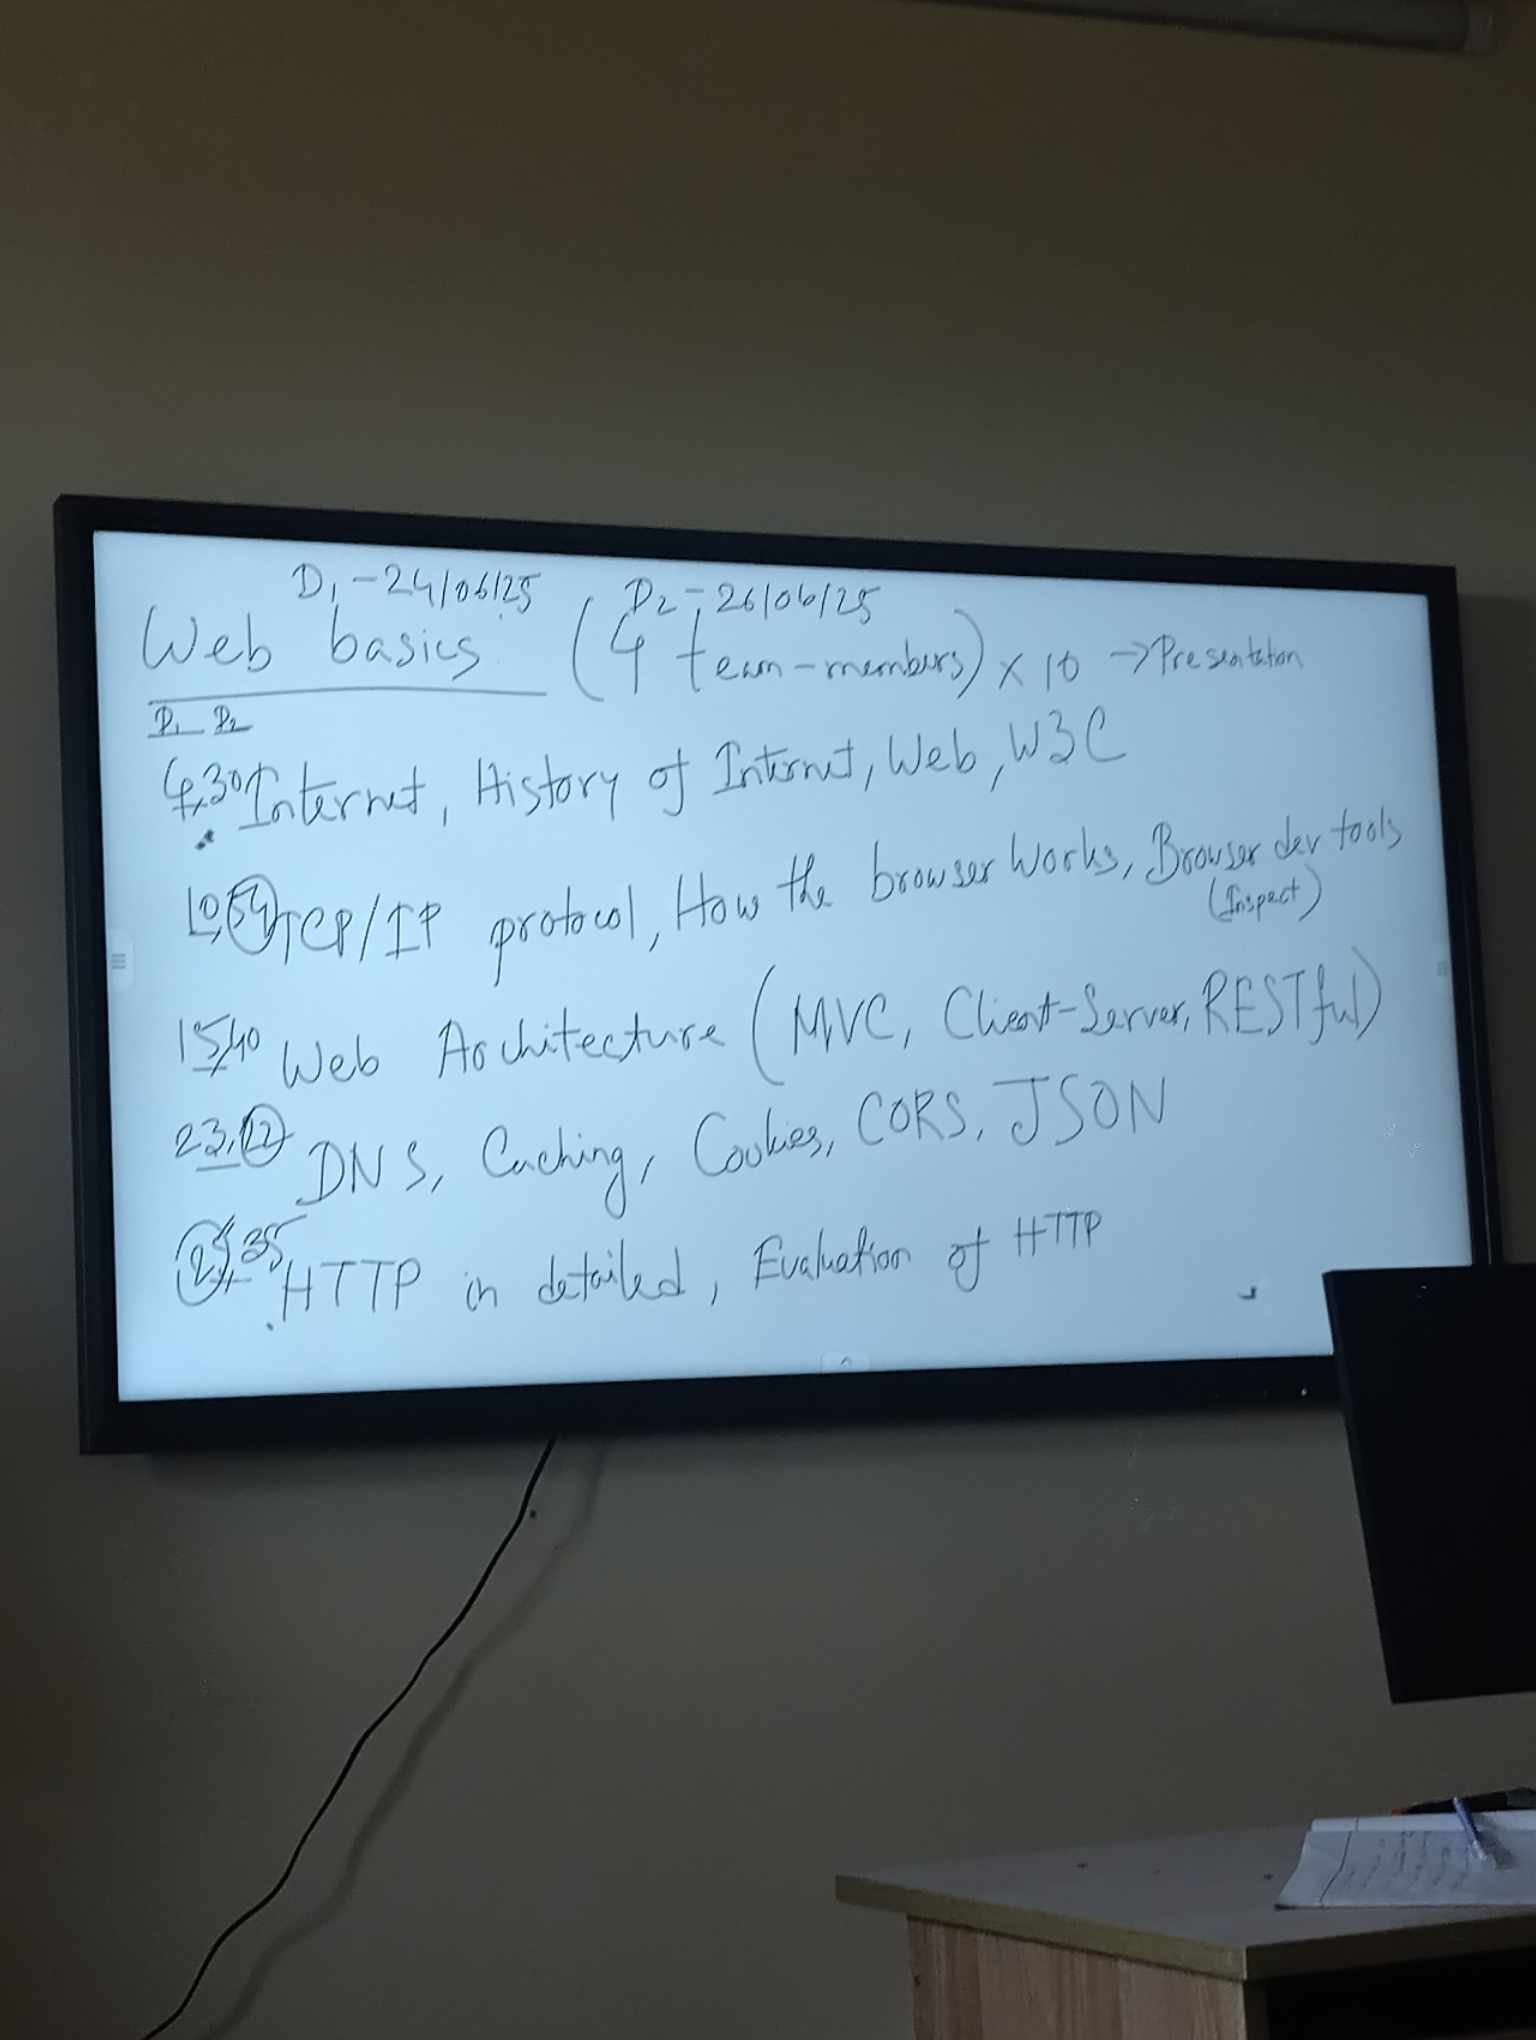 D1 - 24/06/25 D2 - 26/06/25
Web basics (4 team-members) x 10 → Presentation
D1 D2
4,30 Internet, History of Internet, Web, W3C
10,54 TCP/IP protocol, How the browser Works, Browser dev tools
(Inspect)
15,40 Web Architecture (MVC, Client-Server, RESTful)
23, DNS, Caching, Cookies, CORS, JSON
35 HTTP in detailed, Evaluation of HTTP